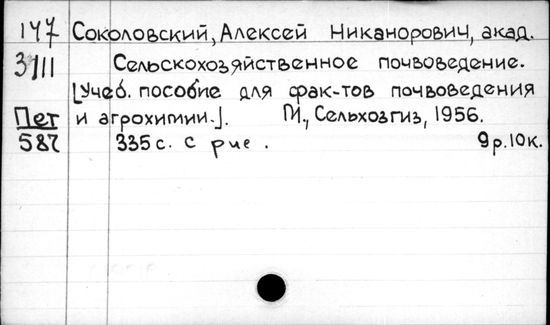 147 Соколовский, Алексей Никанорович, акад.
3111 Сельскохозяйственное почвоведение.
[Учеб. пособие для фак-тов почвоведения
Пет и агрохимии.]. М., Сельхозгиз, 1956.
587 335 с. с рис. 9р.10к.